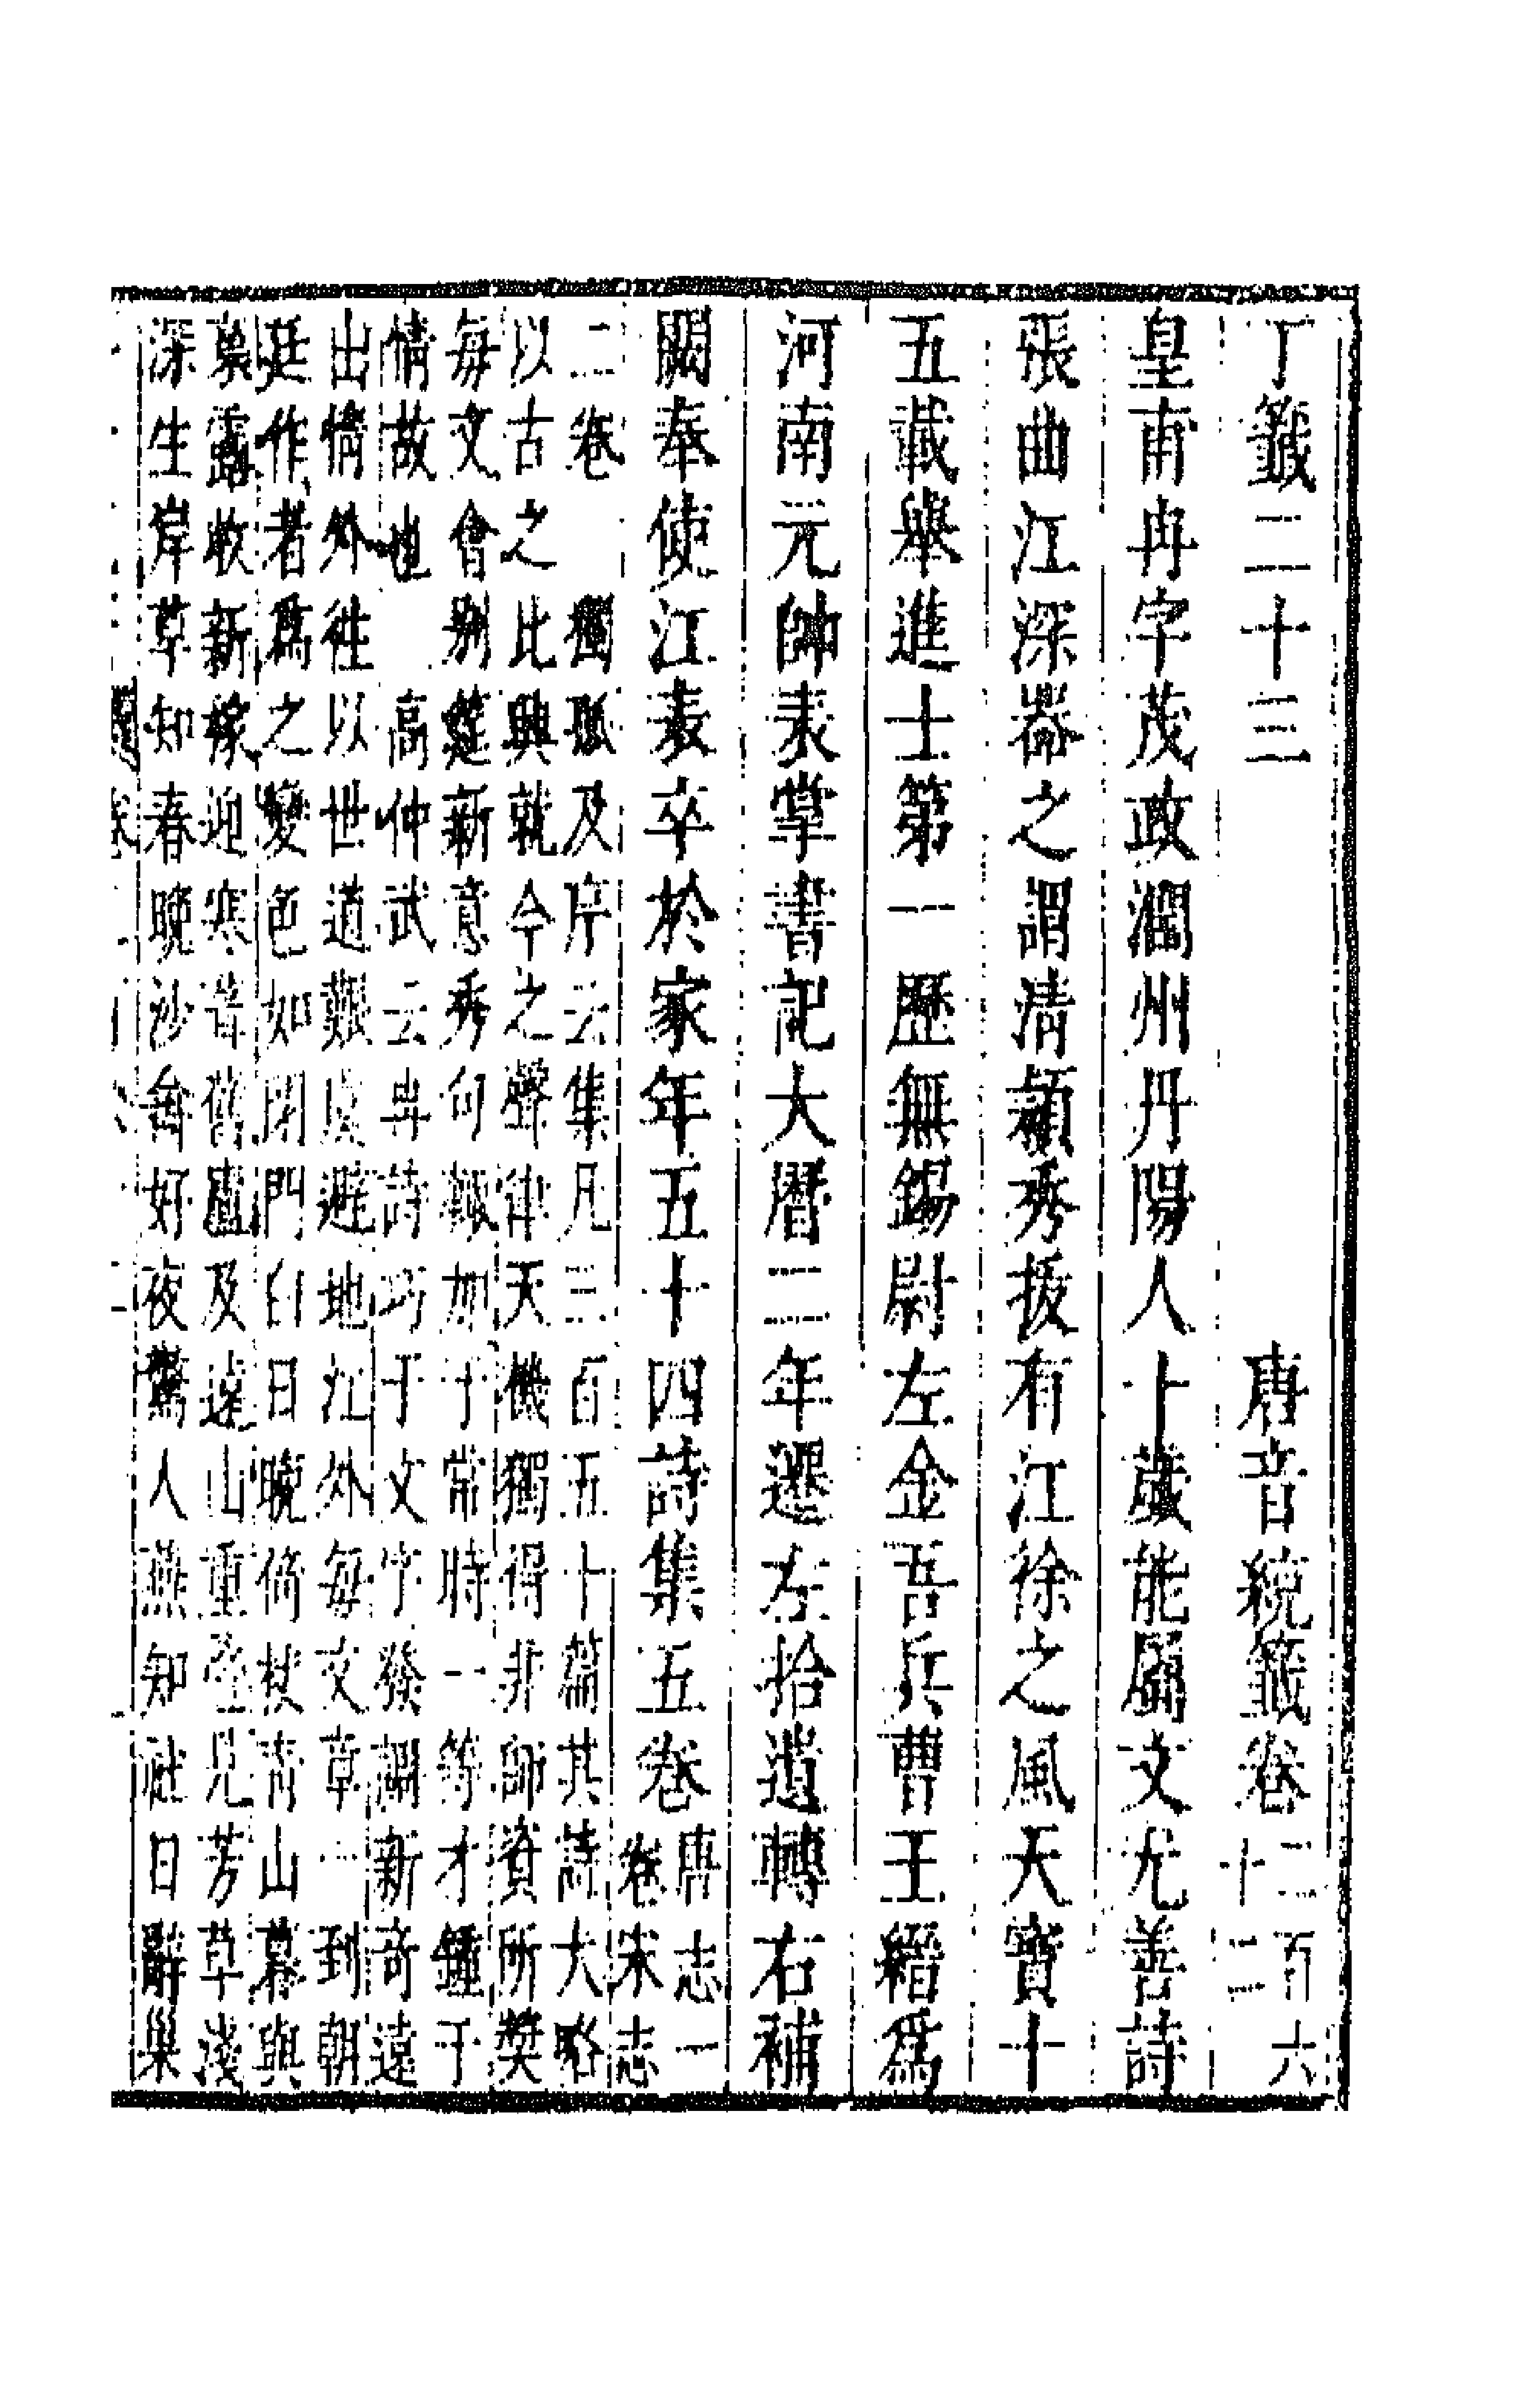 丁籤二十三 唐音統籤卷二百六十二
皇甫冉字茂政潤州丹陽人十歲能屬文尤善詩
張曲江深器之謂清頴秀拔有江徐之風天寶十
五載舉進士第一歷無錫尉左金吾兵曹王縉爲
河南元帥表掌書記大曆二年遷左拾遺轉右補
闕奉使江表卒於家年五十四詩集五卷唐志一
卷宋志
二卷 獨孤及序云集凡三百五十篇其詩大略
以古之比興就今之聲律天機獨得非師資所奬
每文會別筵新意秀句輙加于常時一等才鍾于
情故也 高仲武云冉詩巧于文字發調新奇遠
出情外往以世道艱虞避地江外每文章一到朝
廷作者爲之變色如閉門白日晩倚杖青山暮與
菓露收新稼迎寒葺舊廬及遠山重疊見芳草淺
深生岸草知春晩沙禽好夜驚人燕知社日辭巢